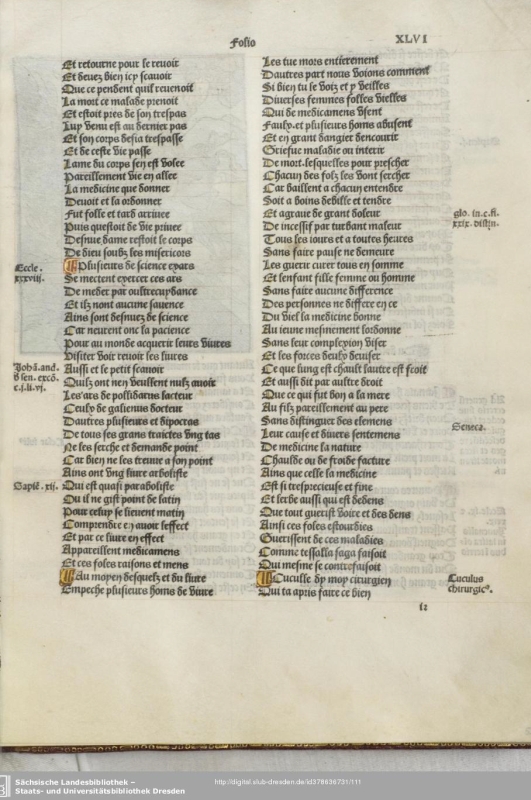 Folio
XLVI
Et retourne pour le revoir
Et devez bien icy scavoir
Que ce pendent quil revenoit
La mort ce malade prenoit
Et estoit pres de son trespas
Luy venu est au dernier pas
Et son corps desia trespasse
Et de ceste vie passe
Lame du corps sen est volee
Pareillement vie en allee
La medicine que donner
Devoit et la ordonner
Fut folle et tard arrivee
Puis questoit de vie privee
Desnue dame restoit le corps
De dieu soubz les misericors
Plusieurs de science exars
Se mectent exercer ces ars
De meder par oultrecuydance
Et ilz nont aucune savence
Ains sont desnuez de science
Car neurent onc la pacience
Pour au monde acquerir leurs vivres
Visiter voir revoir les livres
Aussi et le petit scavoir
Quilz ont nen veullent nulz avoir
Les ars de possidarus lacteur
Ceulx de galienus docteur
Dautres plusieurs et dipocras
De tous ses grans traictes ung tas
Ne les serche et demande point
Car bien ne les treuve a son point
Ains ont ung livre arboliste
Qui est quasi paraboliste
Ou il ne gist point de latin
Pour celuy se lievent matin
Comprendre en avoir leffect
Et par ce livre en effect
Appareillent medicamens
Et ces foles raisons et mens
Au moyen desquelz et du livre
Empeche plusieurs homs de vivre
Eccle.
xxxviii.
Johã. and.
v sen. excõ.
c.j.li.vj.
Sapiẽ. xij.
Les tue mors entierement
Dautres part nous voions comment
Si bien tu le voiz et y veilles
Diverses femmes folles vielles
Qui de medicamens usent
Faulx. et plusieurs homs abusent
Et en grant dangier dencourir
Griefve maladie ou interir
De mort. lesquelles pour prescher
Chacun des folz les vont sercher
Car baillent a chacun entendre
Soit a voins debille et tendre
Et agrave de grant doleur
De incessif par turbant maleur
Tous les iours et a toutes heures
Sans faire pause ne demeure
Les guerir curer tous en somme
Et lenfant fille femme ou homme
Sans faire aucune difference
Des personnes ne differe en ce
Du viel la medicine donne
Au ieune mesmement lordonne
Sans leur complexion viser
Et les forces deulx deviser
Ce que lung est chault lautre est froit
Et aussi dit par aultre droit
Que ce qui fut bon a la mere
Au filz pareillement au pere
Sans distinguer des elemens
Leur cause et divers sentemens
De medicine la nature
Chaulde ou de froide facture
Ains que celle la medicine
Est si tresprecieuse et fine
Et lerbe aussi qui est dedens
Que tout guerist voire et des dens
Ainsi ces foles estourdies
Guerissent de ces maladies
Comme tessalla saga faisoit
Qui mesme se contrefaisoit
Cuculle dy moy cirurgien
Qui ta apris faire ce bien
glo. in.c.fi.
xxix. distin.
Seneca.
Cuculus
chirurgicꝰ.
Sächsische Landesbibliothek –
Staats- und Universitätsbibliothek Dresden
http://digital.slub-dresden.de/id378636731/111